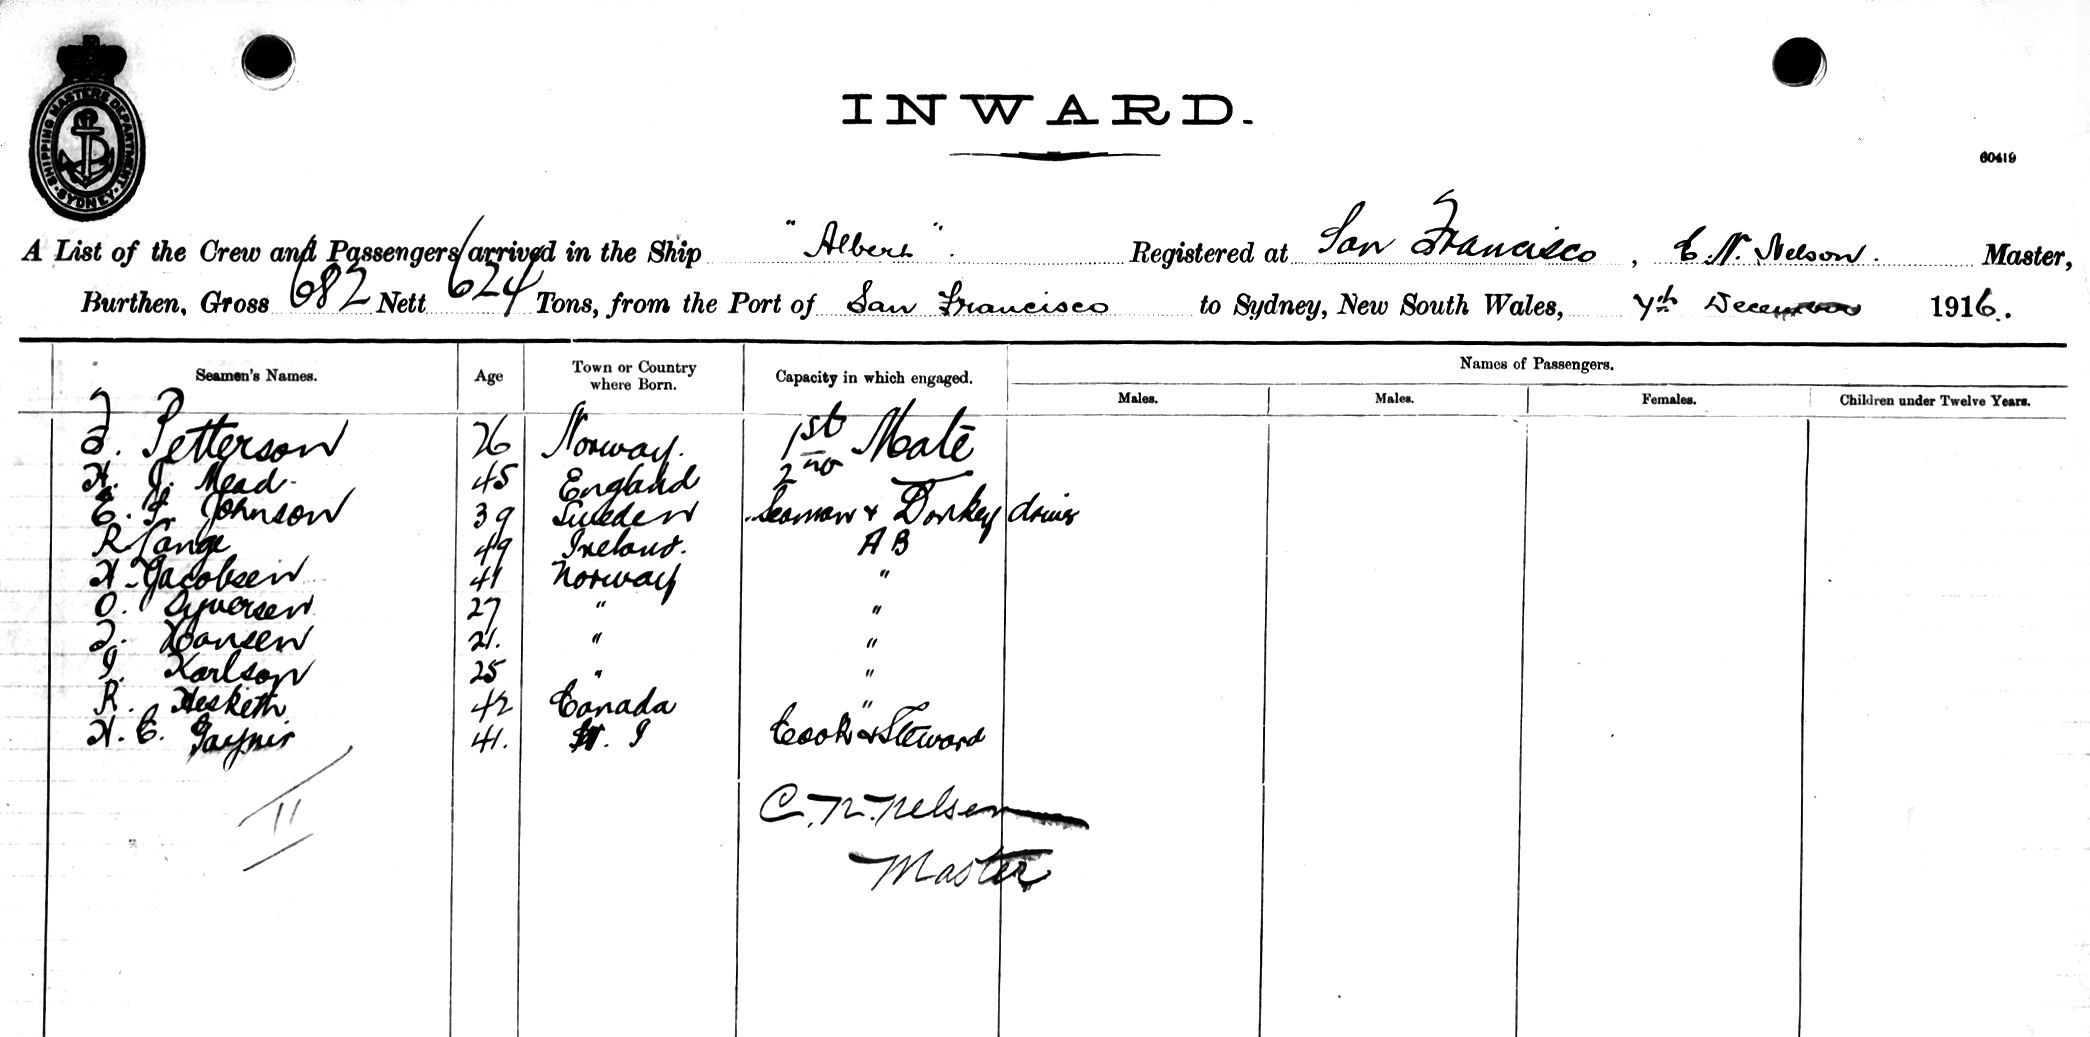 SHIPPING MASTERS DEPARTMENT · SYDNEY ·
INWARD.
60419
A List of the Crew and Passengers arrived in the Ship "Albert". Registered at San Francisco, C. N. Nelson. Master,
Burthen, Gross 682 Nett 624 Tons, from the Port of San Francisco to Sydney, New South Wales, 7th December 1916.
Seamen's Names. Age Town or Country where Born. Capacity in which engaged. Names of Passengers.
Males. Males. Females. Children under Twelve Years.
Petterson 26 Norway. 1st Mate
H. J. Mead 45 England 2nd "
E. F. Johnson 39 Sweden Seaman & Donkey driver
R Lange 49 Ireland. AB
H. Jacobsen 41 Norway "
O. Syversen 27 " "
Hansen 21. " "
Karlson 25 " "
R. Hesketh 42 Canada "
H. C. 41. W. I Cook & Steward
11
C. N. Nelsen
Master